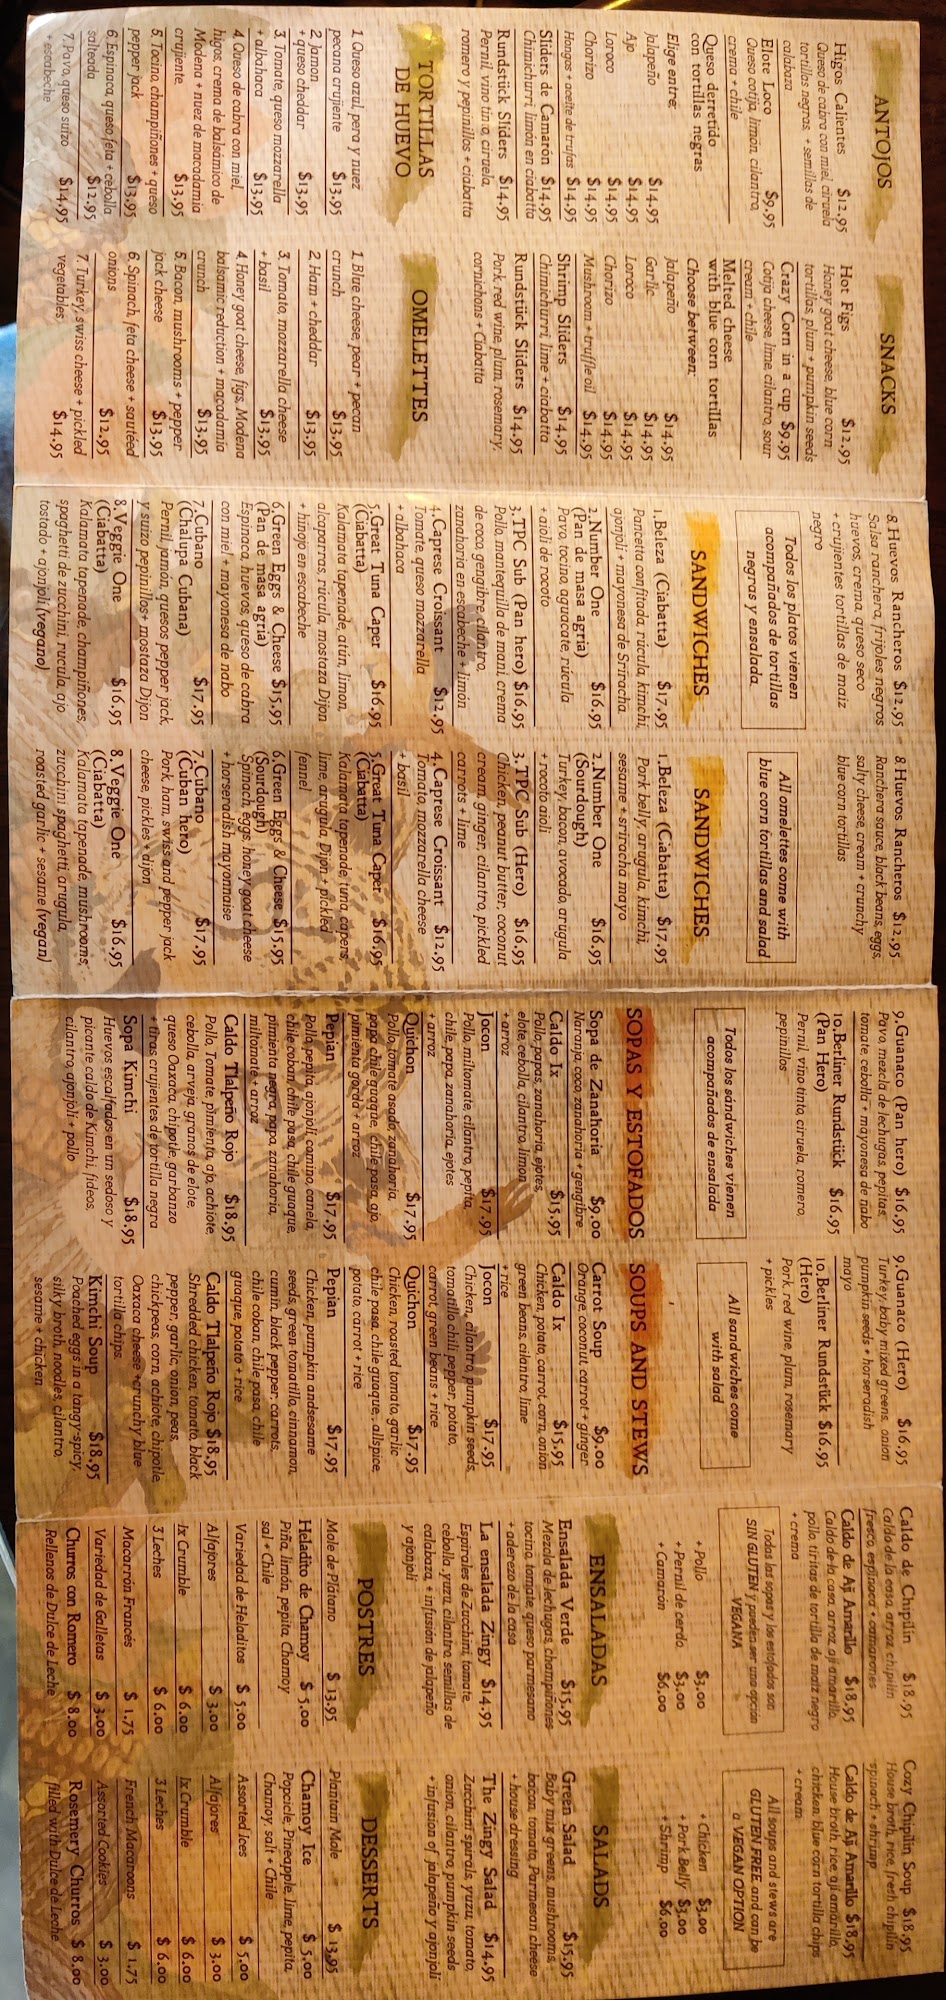 ANTOJOS
Higos Calientes $12.95
Queso de cabra con miel, ciruela
tortillas negras, + semillas de
calabaza
Elote Loco $9.95
Queso cotija, limón, cilantro,
crema + chile
Queso derretido
con tortillas negras
Elige entre:
Jalapeño $14.95
Ajo $14.95
Loroco $14.95
Chorizo $14.95
Hongos + aceite de trufas $14.95
Sliders de Camarón $14.95
Chimichurri, limón en ciabatta
Rundstück Sliders $14.95
Pernil, vino tinto, ciruela,
romero y pepinillos + ciabatta
TORTILLAS
DE HUEVO
1. Queso azul, pera y nuez
pecana crujiente $13.95
2. Jamon
+ queso cheddar $13.95
3. Tomate, queso mozzarella
+ albahaca $13.95
4. Queso de cabra con miel,
higos, crema de balsámico de
Modena + nuez de macadamia
crujiente $13.95
5. Tocino, champiñones + queso
pepper jack $13.95
6. Espinaca, queso feta + cebolla
salteada $12.95
7. Pavo, queso suizo
+ escabeche $14.95
SNACKS
Hot Figs $12.95
Honey goat cheese, blue corn
tortillas, plum + pumpkin seeds
Crazy Corn in a cup $9.95
Cotija cheese, lime, cilantro, sour
cream + chile
Melted cheese
with blue corn tortillas
Choose between:
Jalapeño $14.95
Garlic $14.95
Loroco $14.95
Chorizo $14.95
Mushroom + truffle oil $14.95
Shrimp Sliders $14.95
Chimichurri, lime + ciabatta
Rundstück Sliders $14.95
Pork, red wine, plum, rosemary,
cornichons + Ciabatta
OMELETTES
1. Blue cheese, pear + pecan
crunch $13.95
2. Ham + cheddar $13.95
3. Tomato, mozzarella cheese
+ basil $13.95
4. Honey goat cheese, figs, Modena
balsamic reduction + macadamia
crunch $13.95
5. Bacon, mushrooms + pepper
jack cheese $13.95
6. Spinach, feta cheese + sautéed
onions $12.95
7. Turkey, swiss cheese + pickled
vegetables $14.95
8. Huevos Rancheros $12.95
Salsa ranchera, frijoles negros
huevos, crema, queso seco
+ crujientes tortillas de maiz
negro
Todos los platos vienen
acompañados de tortillas
negras y ensalada.
SANDWICHES
1. Beleza (Ciabatta) $17.95
Pancetta confitada, rúcula, kimchi,
ajonjoli + mayonesa de Sriracha
2. Number One $16.95
(Pan de masa agria)
Pavo, tocino, aguacate, rúcula
+ aioli de rocoto
3. TPC Sub (Pan hero) $16.95
Pollo, mantequilla de mani, crema
de coco, gengibre, cilantro,
zanahoria en escabeche + limón
4. Caprese Croissant $12.95
Tomate, queso mozzarella
+ albahaca
5. Great Tuna Caper $16.95
(Ciabatta)
Kalamata tapenade, atún, limon,
alcaparras, rúcula, mostaza Dijon
+ hinojo en escabeche
6. Green Eggs & Cheese $15.95
(Pan de masa agria)
Espinaca, huevos, queso de cabra
con miel + mayonesa de nabo
7. Cubano $17.95
(Chalupa Cubana)
Pernil, jamón, quesos pepper jack
y suizo pepinillos + mostaza Dijon
8. Veggie One $16.95
(Ciabatta)
Kalamata tapenade, champiñones,
spaghetti de zucchini, rucula, ajo
tostado + ajonjoli (vegano)
8. Huevos Rancheros $12.95
Ranchera sauce, black beans, eggs,
salty cheese, cream + crunchy
blue corn tortillas
All omelettes come with
blue corn tortillas and salad
SANDWICHES
1. Beleza (Ciabatta) $17.95
Pork belly, arugula, kimchi,
sesame + sriracha mayo
2. Number One $16.95
(Sourdough)
Turkey, bacon, avocado, arugula
+ rocoto aioli
3. TPC Sub (Hero) $16.95
Chicken, peanut butter, coconut
cream, ginger, cilantro, pickled
carrots + lime
4. Caprese Croissant $12.95
Tomato, mozzarella cheese
+ basil
5. Great Tuna Caper $16.95
(Ciabatta)
Kalamata tapenade, tuna, capers,
lime, arugula, Dijon + pickled
fennel
6. Green Eggs & Cheese $15.95
(Sourdough)
Spinach, eggs, honey goat cheese
+ horseradish mayonnaise
7. Cubano $17.95
(Cuban hero)
Pork, ham, swiss and pepper jack
cheese, pickles + dijon
8. Veggie One $16.95
(Ciabatta)
Kalamata tapenade, mushrooms,
zucchini spaghetti, arugula,
roasted garlic + sesame (vegan)
9. Guanaco (Pan hero) $16.95
Pavo, mezcla de lechugas, pepitas,
tomate, cebolla + mayonesa de nabo
10. Berliner Rundstück $16.95
(Pan Hero)
Pernil, vino tinto, ciruela, romero,
pepinillos
Todos los sándwiches vienen
acompañados de ensalada
SOPAS Y ESTOFADOS
Sopa de Zanahoria $9.00
Naranja, coco, zanahoria + gengibre
Caldo Ix $15.95
Pollo, papas, zanahoria, ejotes,
elote, cebolla, cilantro, limon
+ arroz
Jocon $17.95
Pollo, miltomate, cilantro, pepita,
chile, papa, zanahoria, ejotes
+ arroz
Quichon $17.95
Pollo, tomate asado, zanahoria,
papa, chile guaque, chile pasa, ajo,
pimienta gorda + arroz
Pepian $17.95
Pollo, pepita, ajonjoli, comino, canela,
chile coban, chile pasa, chile guaque,
pimienta negra, papa, zanahoria,
miltomate + arroz
Caldo Tlalpeño Rojo $18.95
Pollo, Tomate, pimienta, ajo, achiote,
cebolla, arveja, granos de elote,
queso Oaxaca, chipotle, garbanzo
+ tiras crujientes de tortilla negra
Sopa Kimchi $18.95
Huevos escalfados en un sedoso y
picante caldo de Kimchi, fideos,
cilantro, ajonjoli + pollo
9. Guanaco (Hero) $16.95
Turkey, baby mixed greens, onion
pumpkin seeds + horseradish
mayo
10. Berliner Rundstück $16.95
(Hero)
Pork, red wine, plum, rosemary
+ pickles
All sandwiches come
with salad
SOUPS AND STEWS
Carrot Soup $9.00
Orange, coconut, carrot + ginger
Caldo Ix $15.95
Chicken, potato, carrot, corn, onion
green beans, cilantro, lime
+ rice
Jocon $17.95
Chicken, cilantro, pumpkin seeds,
tomatillo chili pepper, potato,
carrot, green beans + rice
Quichon $17.95
Chicken, roasted tomato, garlic
chile pasa, chile guaque, allspice,
potato, carrot + rice
Pepian $17.95
Chicken, pumpkin andsesame
seeds, green tomatillo, cinnamon,
cumin, black pepper, carrots,
chile coban, chile pasa, chile
guaque, potato + rice
Caldo Tlalpeño Rojo $18.95
Shredded chicken, tomato, black
pepper, garlic, onion, peas,
chickpeas, corn, achiote, chipotle,
Oaxaca cheese + crunchy blue
tortilla chips.
Kimchi Soup $18.95
Poached eggs in a tangy-spicy,
silky broth, noodles, cilantro,
sesame + chicken
Caldo de Chipilín $18.95
Caldo de la casa, arroz, chipilín
fresco, espinaca + camarones
Caldo de Aji Amarillo $18.95
Caldo de la casa, arroz, aji amarillo,
pollo, tiritas de tortilla de maíz negro
+ crema
Todas las sopas y los estofados son
SIN GLUTEN y pueden ser una opción
VEGANA
+ Pollo $3.00
+ Pernil de cerdo $3.00
+ Camarón $6.00
ENSALADAS
Ensalada Verde $15.95
Mezcla de lechugas, champiñones
tocino, tomate, queso parmesano
+ aderezo de la casa
La ensalada Zingy $14.95
Espirales de Zucchini, tomate,
cebolla, yuzu, cilantro, semillas de
calabaza, + infusión de jalapeño
y ajonjoli
POSTRES
Mole de Plátano $ 13.95
Heladito de Chamoy $ 5.00
Piña, limón, pepita, Chamoy
sal + Chile
Variedad de Heladitos $ 5.00
Alfajores $ 3.00
Ix Crumble $ 6.00
3 Leches $ 6.00
Macarrón Francés $ 1.75
Variedad de Galletas $ 3.00
Churros con Romero $ 8.00
Rellenos de Dulce de Leche
Cozy Chipilín Soup $18.95
House broth, rice, fresh chipilín
spinach + shrimp
Caldo de Aji Amarillo $18.95
House broth, rice, aji amarillo,
chicken, blue corn tortilla chips
+ cream
All soups and stews are
GLUTEN FREE and can be
a VEGAN OPTION
+ Chicken $3.00
+ Pork Belly $3.00
+ Shrimp $6.00
SALADS
Green Salad $15.95
Baby mix greens, mushrooms,
bacon, tomato, Parmesan cheese
+ house dressing
The Zingy Salad $14.95
Zucchini spirals, yuzu, tomato,
onion, cilantro, pumpkin seeds
+ infusion of jalapeño y ajonjoli
DESSERTS
Plantain Mole $ 13.95
Chamoy Ice $ 5.00
Popcicle, Pineapple, lime, pepita,
Chamoy, salt + Chile
Assorted Ices $ 5.00
Alfajores $ 3.00
Ix Crumble $ 6.00
3 Leches $ 6.00
French Macaroons $ 1.75
Assorted Cookies $ 3.00
Rosemery Churros $ 8.00
filled with Dulce de Leche